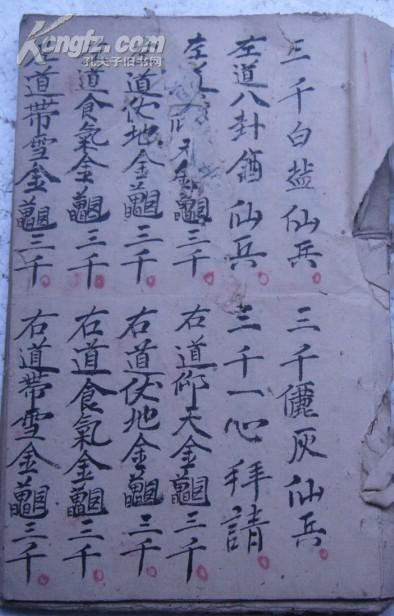 三千白盐仙兵　三千儷灰仙兵
左道八封酒仙兵　三千一心拜請
左天金龜三千　右道仰天金龜三千
道伏地金龜三千　右道伏地金龜三千
道食氣金龜三千　右道食氣金龜三千
道帶雪金龜三千　右道帶雪金龜三千
Kongfz.com
孔夫子旧书网